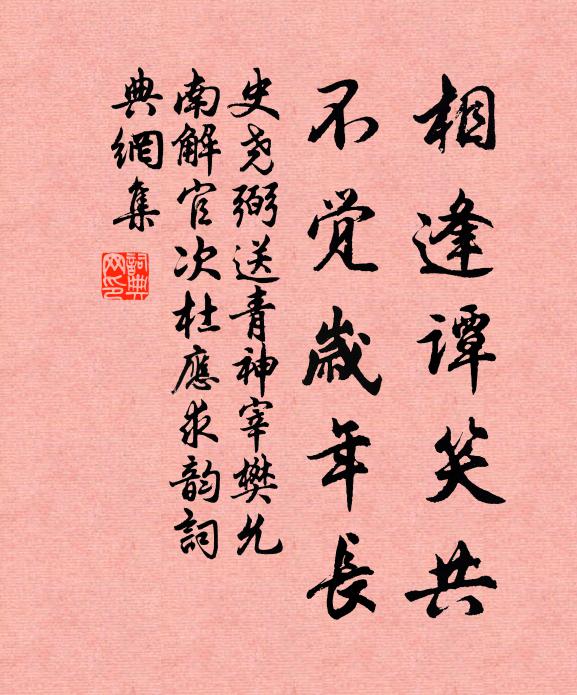 相逢谭笑共
不觉岁年长
史尧弼送青神宰樊允
南解官次杜应求韵词
典網集
詞典網印